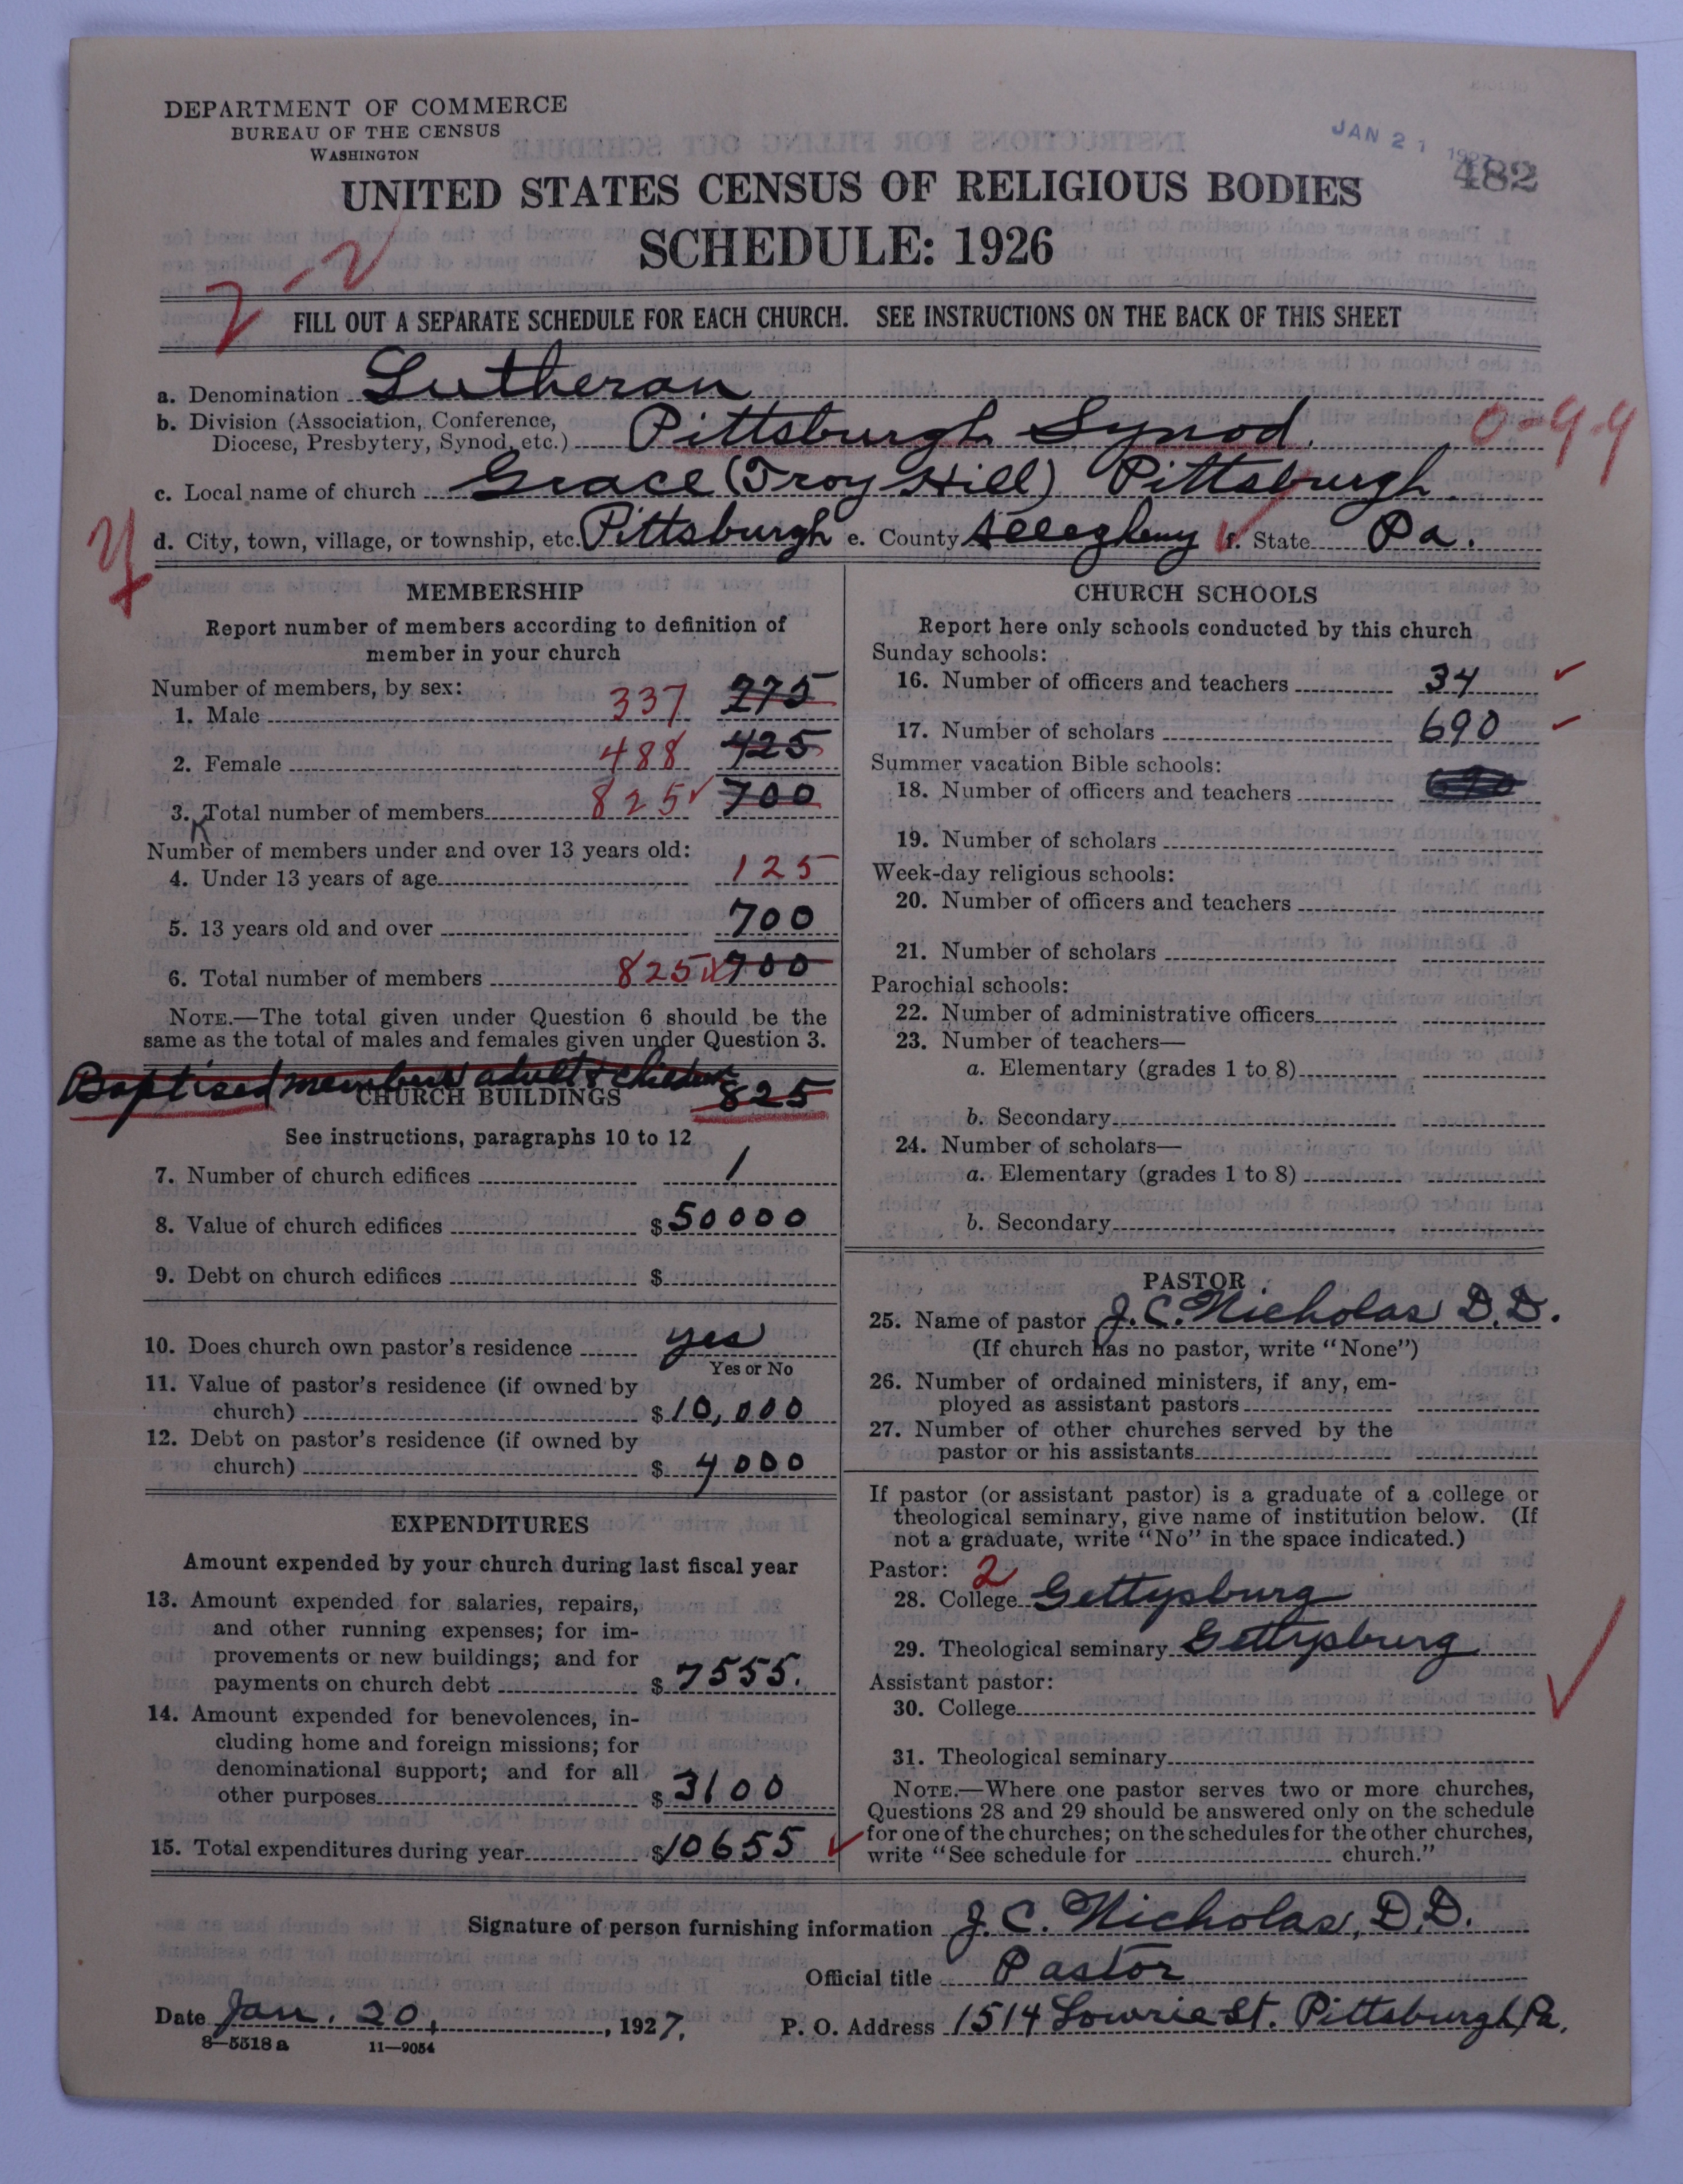 DEPARTMENT OF COMMERCE
BUREAU OF THE CENSUS
WASHINGTON
JAN 21 1927
482
UNITED STATES CENSUS OF RELIGIOUS BODIES
SCHEDULE: 1926
2-2
FILL OUT A SEPARATE SCHEDULE FOR EACH CHURCH. SEE INSTRUCTIONS ON THE BACK OF THIS SHEET
a. Denomination Lutheran
b. Division (Association, Conference,
Diocese, Presbytery, Synod, etc.) Pittsburgh Synod. 0-99
c. Local name of church Grace (Troy Hill) Pittsburgh.
d. City, town, village, or township, etc. Pittsburgh e. County Allegheny f. State Pa.
MEMBERSHIP
Report number of members according to definition of
member in your church
Number of members, by sex:
1. Male 337 275
2. Female 488 425
3. Total number of members 825 700
Number of members under and over 13 years old:
4. Under 13 years of age 125
5. 13 years old and over 700
6. Total number of members 825 700
NOTE.—The total given under Question 6 should be the
same as the total of males and females given under Question 3.
Baptised members adult & children 825
CHURCH BUILDINGS
See instructions, paragraphs 10 to 12
7. Number of church edifices 1
8. Value of church edifices $50000
9. Debt on church edifices $
10. Does church own pastor's residence yes
Yes or No
11. Value of pastor's residence (if owned by
church) $10,000
12. Debt on pastor's residence (if owned by
church) $4000
EXPENDITURES
Amount expended by your church during last fiscal year
13. Amount expended for salaries, repairs,
and other running expenses; for im-
provements or new buildings; and for
payments on church debt $7555.
14. Amount expended for benevolences, in-
cluding home and foreign missions; for
denominational support; and for all
other purposes $3100
15. Total expenditures during year $10655
CHURCH SCHOOLS
Report here only schools conducted by this church
Sunday schools:
16. Number of officers and teachers 34
17. Number of scholars 690
Summer vacation Bible schools:
18. Number of officers and teachers
19. Number of scholars
Week-day religious schools:
20. Number of officers and teachers
21. Number of scholars
Parochial schools:
22. Number of administrative officers
23. Number of teachers—
a. Elementary (grades 1 to 8)
b. Secondary
24. Number of scholars—
a. Elementary (grades 1 to 8)
b. Secondary
PASTOR
25. Name of pastor J. C. Nicholas D.D.
(If church has no pastor, write "None")
26. Number of ordained ministers, if any, em-
ployed as assistant pastors
27. Number of other churches served by the
pastor or his assistants
If pastor (or assistant pastor) is a graduate of a college or
theological seminary, give name of institution below. (If
not a graduate, write "No" in the space indicated.)
Pastor: 2
28. College Gettysburg
29. Theological seminary Gettysburg
Assistant pastor:
30. College
31. Theological seminary
NOTE.—Where one pastor serves two or more churches,
Questions 28 and 29 should be answered only on the schedule
for one of the churches; on the schedules for the other churches,
write "See schedule for church."
Signature of person furnishing information J. C. Nicholas, D.D.
Official title Pastor
Date Jan. 20, 1927. P. O. Address 1514 Lowrie St. Pittsburgh, Pa.
8—5518 a 11—9054